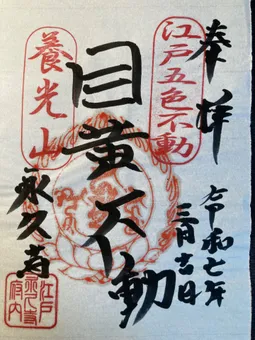 奉拝
江戸五色不動
令和七年
三月吉日
目黄不動
養光山
永久寺